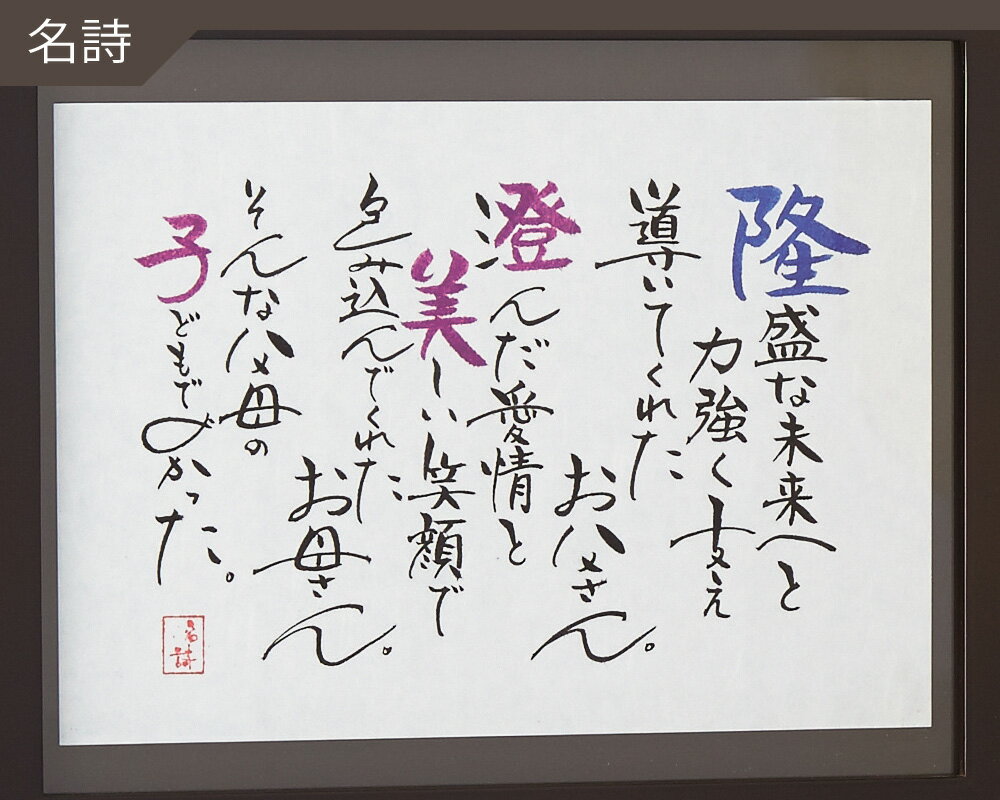 名詩
隆盛な未来へと
力強く支え
導いてくれた
お父さん。
澄んだ愛情と
美しい笑顔で
包み込んでくれた
お母さん。
そんな父母の
子どもでよかった。
名詩